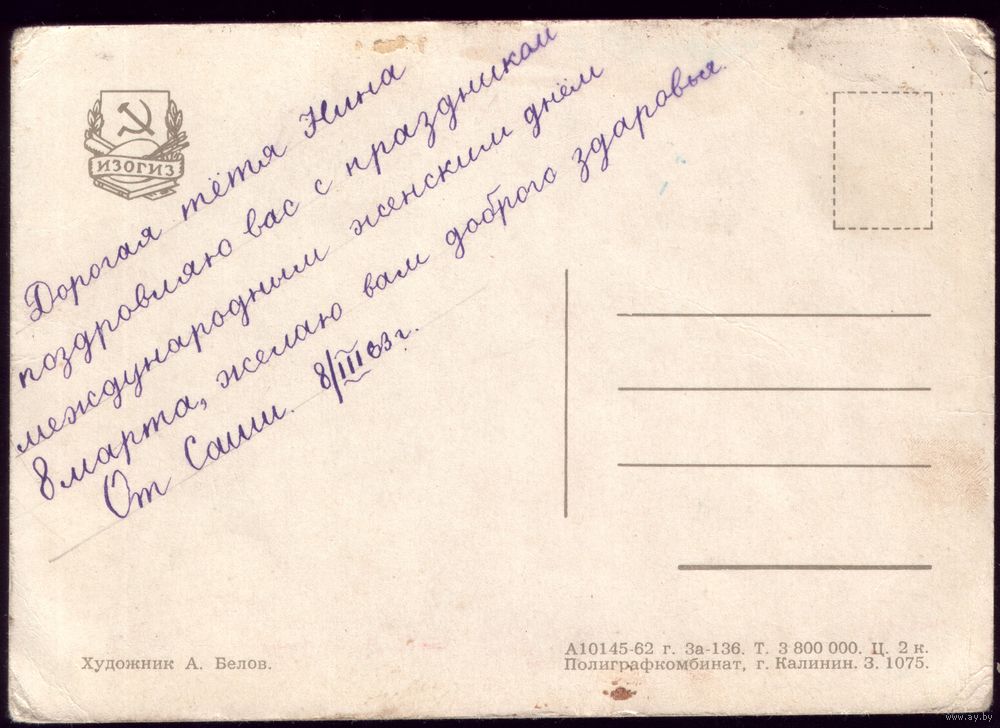 ИЗОГИЗ
Дорогая тётя Нина
поздровляю вас с праздником
международным женским днём
8 марта, желаю вам доброго здаровья.
От Саши. 8/III 63 г.
Художник А. Белов.
А10145-62 г. За-136. Т. 3 800 000. Ц. 2 к.
Полиграфкомбинат, г. Калинин. З. 1075.
www.ay.by